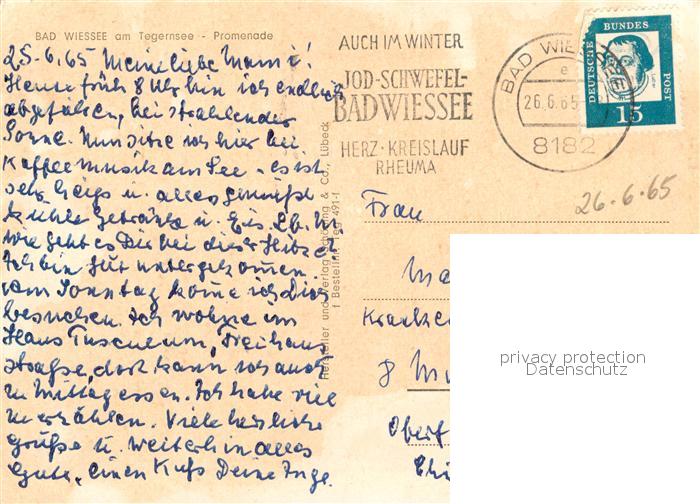 BAD WIESSEE am Tegernsee - Promenade
25.6.65 Meine liebe Mami!
Heute früh 8 Uhr bin ich endlich
abgefahren, bei strahlender
Sonne. Nun sitze ich hier bei
Kaffee musik am See - es ist
sehr heiss u. alles genießt
kühle Getränke u. Eis. Lb. M
wie geht es Dir bei dieser Hitze?
Ich bin gut untergekommen.
am Sonntag komme ich Dich
besuchen. Ich wohne im
Haus Tusculum, Freihaus
straße, dort kann ich auch
zu Mittag essen. Ich habe viel
zu erzählen. Viele herzliche
Grüße u. weiterhin alles
Gute, einen Kuß Deine Inge.
Hersteller und Verlag Schöning & Co., Lübeck
Bestellnr. Teg 491-f
AUCH IM WINTER
JOD-SCHWEFEL-
BAD WIESSEE
HERZ·KREISLAUF
RHEUMA
BAD WIESSEE
e
26.6.65
8182
DEUTSCHE BUNDES POST
15
26.6.65
Frau
Ma
Kranke
8 Mü
Oberf
privacy protection
Datenschutz